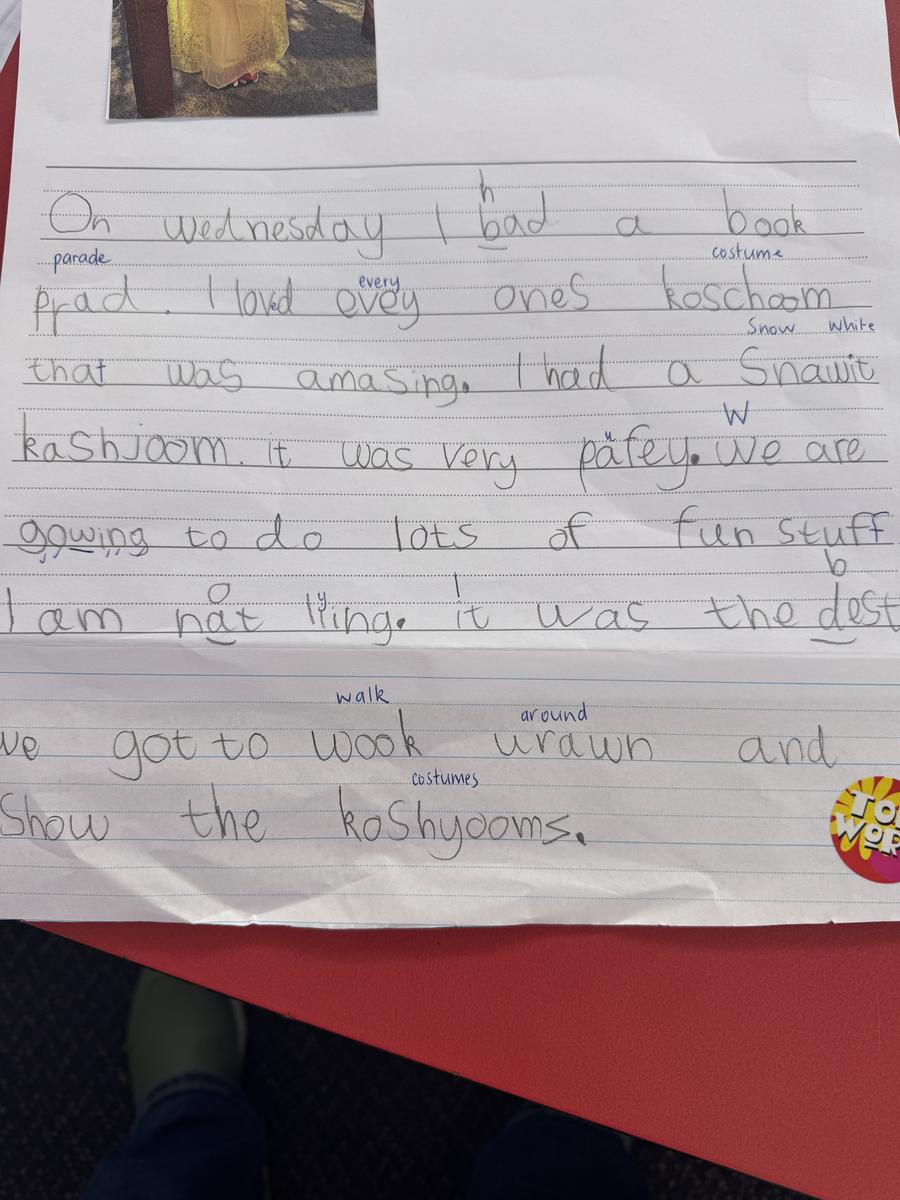 h
On wednesday I bad a book
parade every costume
prad. I loved evey ones koschoom
Snow White
that was amasing. I had a Snawit
W
kashjoom. it was very pafey. we are
u
gowing to do lots of fun stuff
o y I b
I am nat lling. it was the dest
walk around
we got to wook urawn and
costumes
Show the koshyooms.
TO
WOR